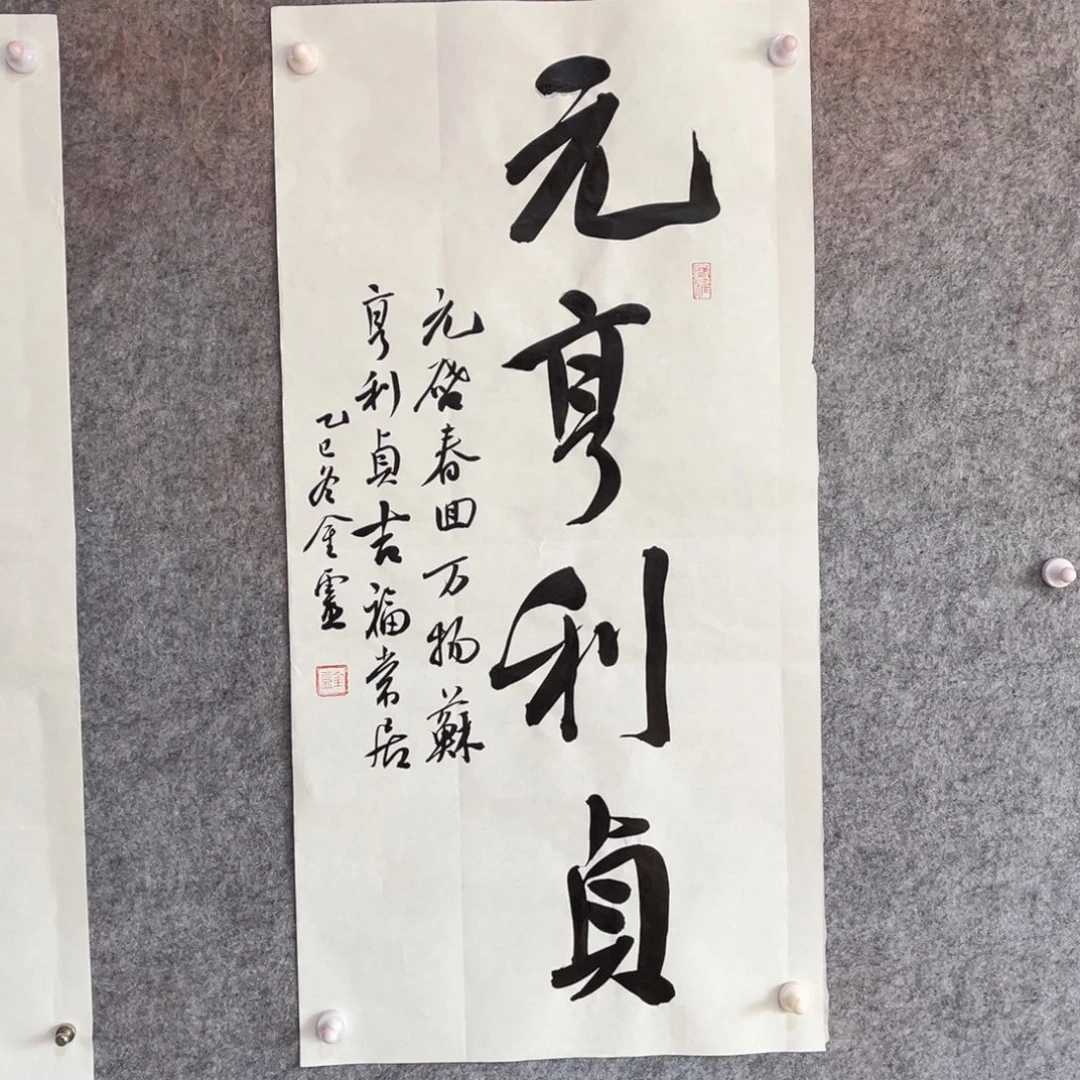 元亨利貞
元啓春回万物蘇
亨利貞吉福常居
乙巳冬金靈